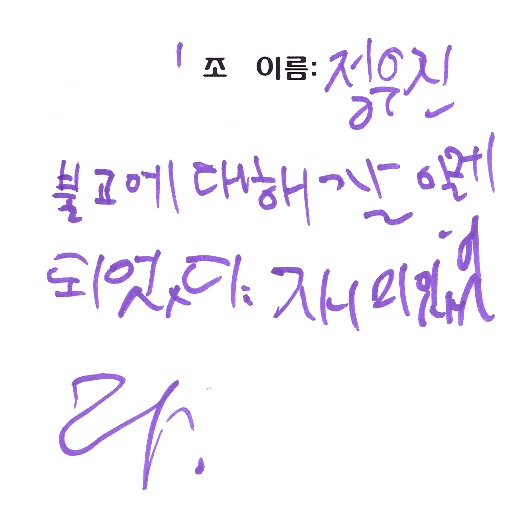 1 조 이름: 정우진
불교에 대해 잘 알게
되었다. 재미있었
다.